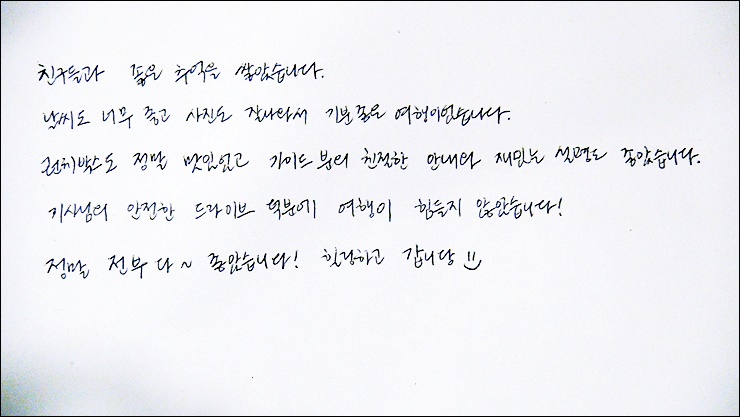 친구들과 좋은 추억을 쌓았습니다.
날씨도 너무 좋고 사진도 잘나와서 기분좋은 여행이었습니다.
런치박스도 정말 맛있었고 가이드분의 친절한 안내와 재밌는 설명도 좋았습니다.
기사님의 안전한 드라이브 덕분에 여행이 힘들지 않았습니다!
정말 전부 다~ 좋았습니다! 힐링하고 갑니당